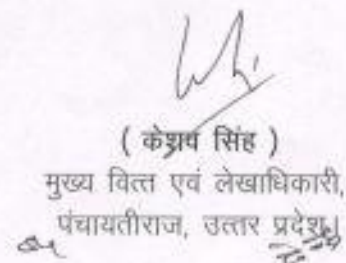 ( केशव सिंह )
मुख्य वित्त एवं लेखाधिकारी,
पंचायतीराज, उत्तर प्रदेश।